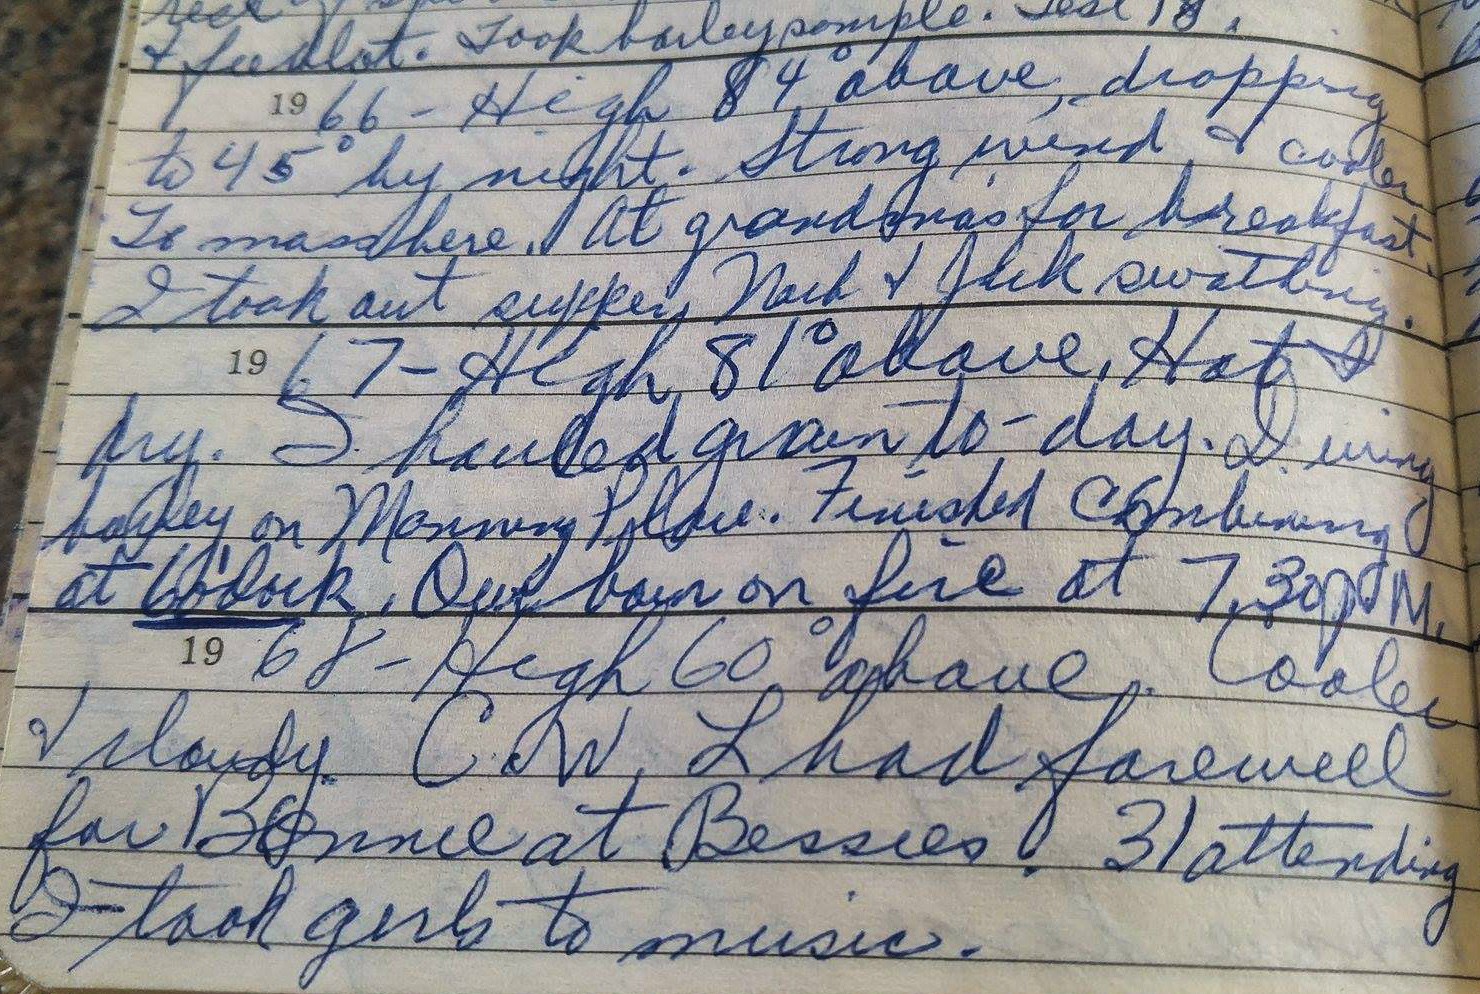 & feedlot. Took barley sample. Test 18.
1966 - High 84° above, dropping
to 45° by night. Strong wind & cooler
To mass here. At grandma's for breakfast.
I took out supper, & Jack swathing.
1967 - High 81° above, Hot &
dry. I hauled grain to-day.
barley on Manning Place. Finished Combining
at 6 o'clock. Our barn on fire at 7.30 P.M.
1968 - High 60° above. Cooler
& cloudy. C.W.L had farewell
for Bonnie at Bessies. 31 attending
I took girls to music.